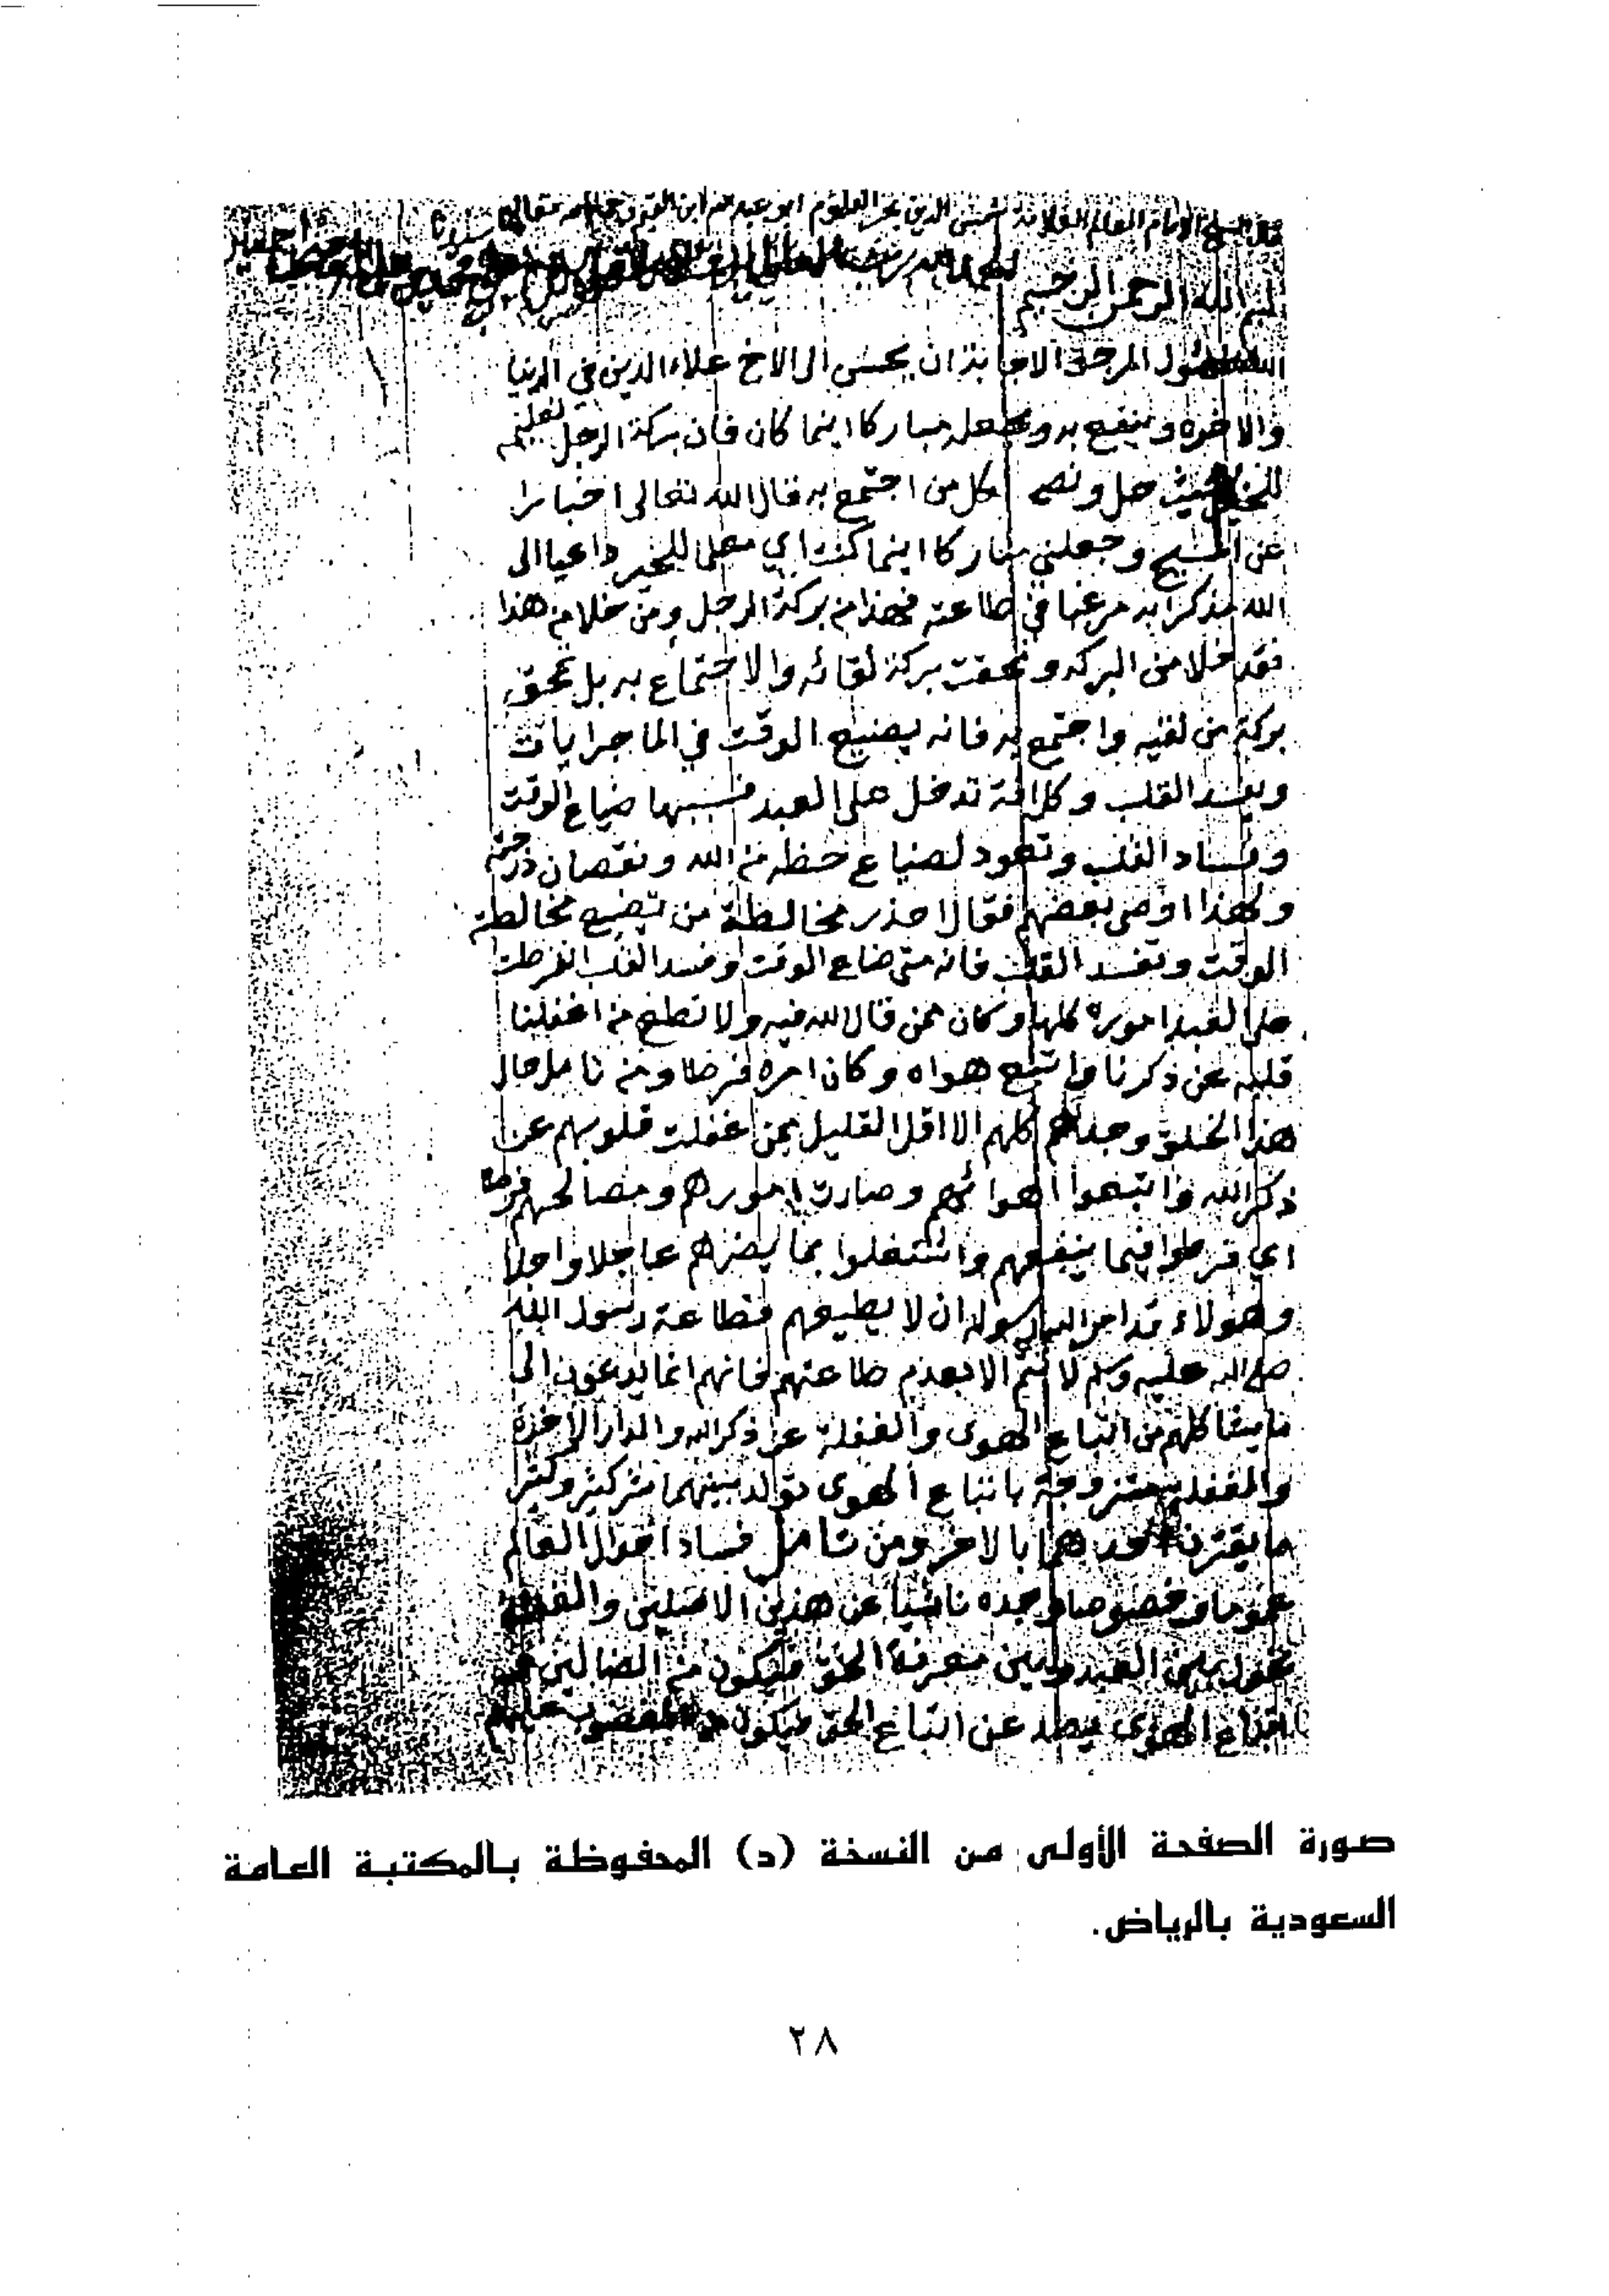 قال الشيخ الامام العالم العلامة شمس الدين بحر العلوم ابو عبد الله ابن القيم رحمه الله تعالى
بسم الله الرحمن الرحيم
الله المسئول المرجو الاجابة ان يحسن الى الاخ علاء الدين في الدنيا
والاخره وينفع به ويجعله مباركا اينما كان فان بركة الرجل تعليمه
للخير حيث حل ونصحه لكل من اجتمع به قال الله تعالى اخبارا
عن المسيح وجعلني مباركا اينما كنت اي معلما للخير داعيا الى
الله مذكرا به مرغبا في طاعته فهذا من بركة الرجل ومن خلا من هذا
فقد خلا من البركه ومحقت بركة لقائه والاجتماع به بل تمحق
بركة من لقيه واجتمع به فانه يضيع الوقت في الماجرايات
ويفسد القلب وكل افة تدخل على العبد فسببها ضياع الوقت
وفساد القلب وتعود لضياع حظه من الله ونقصان درجته
ولهذا اوصى بعضهم فقال احذر مخالطة من تضيع مخالطته
الوقت وتفسد القلب فانه متى ضاع الوقت وفسد القلب انفرطت
على العبد اموره كلها وكان ممن قال الله فيه ولا تطع من اغفلنا
قلبه عن ذكرنا واتبع هواه وكان امره فرطا ومن تامل حال
هذا الخلق وجدهم كلهم الا اقل القليل ممن غفلت قلوبهم عن
ذكر الله واتبعوا اهوائهم وصارت امورهم ومصالحهم فرطا
اي فرطوا فيما ينفعهم واشتغلوا بما يضرهم عاجلا واجلا
وهولاء قد امر الله رسوله ان لا يطيعهم فطاعة رسول الله
صلى الله عليه وسلم لا تتم الا بعدم طاعتهم فانهم انما يدعون الى
ما يشاكلهم من اتباع الهوى والغفلة عن ذكر الله والدار الاخرة
والغفلة متزوجة باتباع الهوى تولد بينهما شر كثير وكثيرا
ما يقترن احدهما بالاخر ومن تامل فساد احوال العالم
عموما وخصوصا وجده ناشيا عن هذين الاصلين والغفلة
تحول بين العبد وبين معرفة الحق فيكون من الضالين
اتباع الهوى يصد عن اتباع الحق فيكون من المغضوب عليهم
صورة الصفحة الأولى من النسخة (د) المحفوظة بالمكتبة العامة
السعودية بالرياض.
٢٨